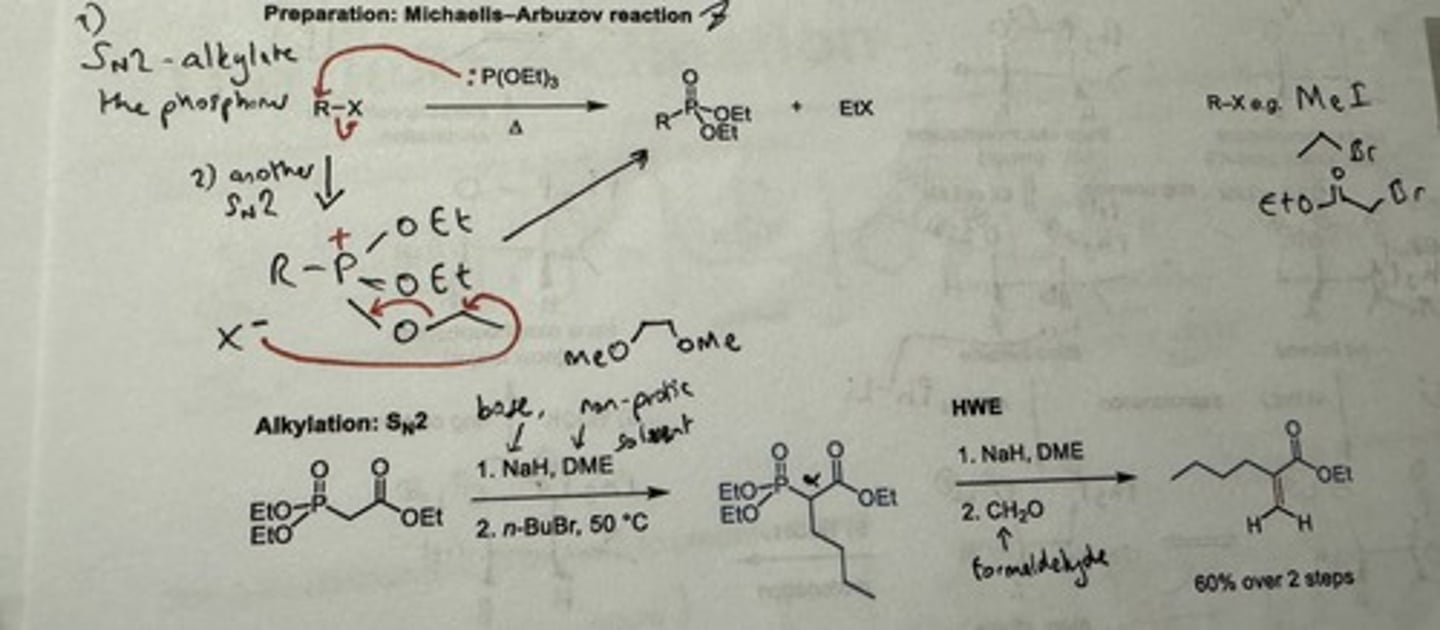 Preparation: Michaelis–Arbuzov reaction
1)
SN2 - alkylate
the phosphorus
R–X
:P(OEt)3
Δ
O
R P OEt
OEt
+
EtX
R–X e.g. MeI
Br
O
EtO Br
2) another
SN2
+
R – P OEt
OEt
O
X-
MeO OMe
Alkylation: SN2
base, non-protic
solvent
O O
EtO P OEt
EtO
1. NaH, DME
2. n-BuBr, 50 °C
O O
EtO P α OEt
EtO
HWE
1. NaH, DME
2. CH2O
formaldehyde
O
OEt
H H
60% over 2 steps